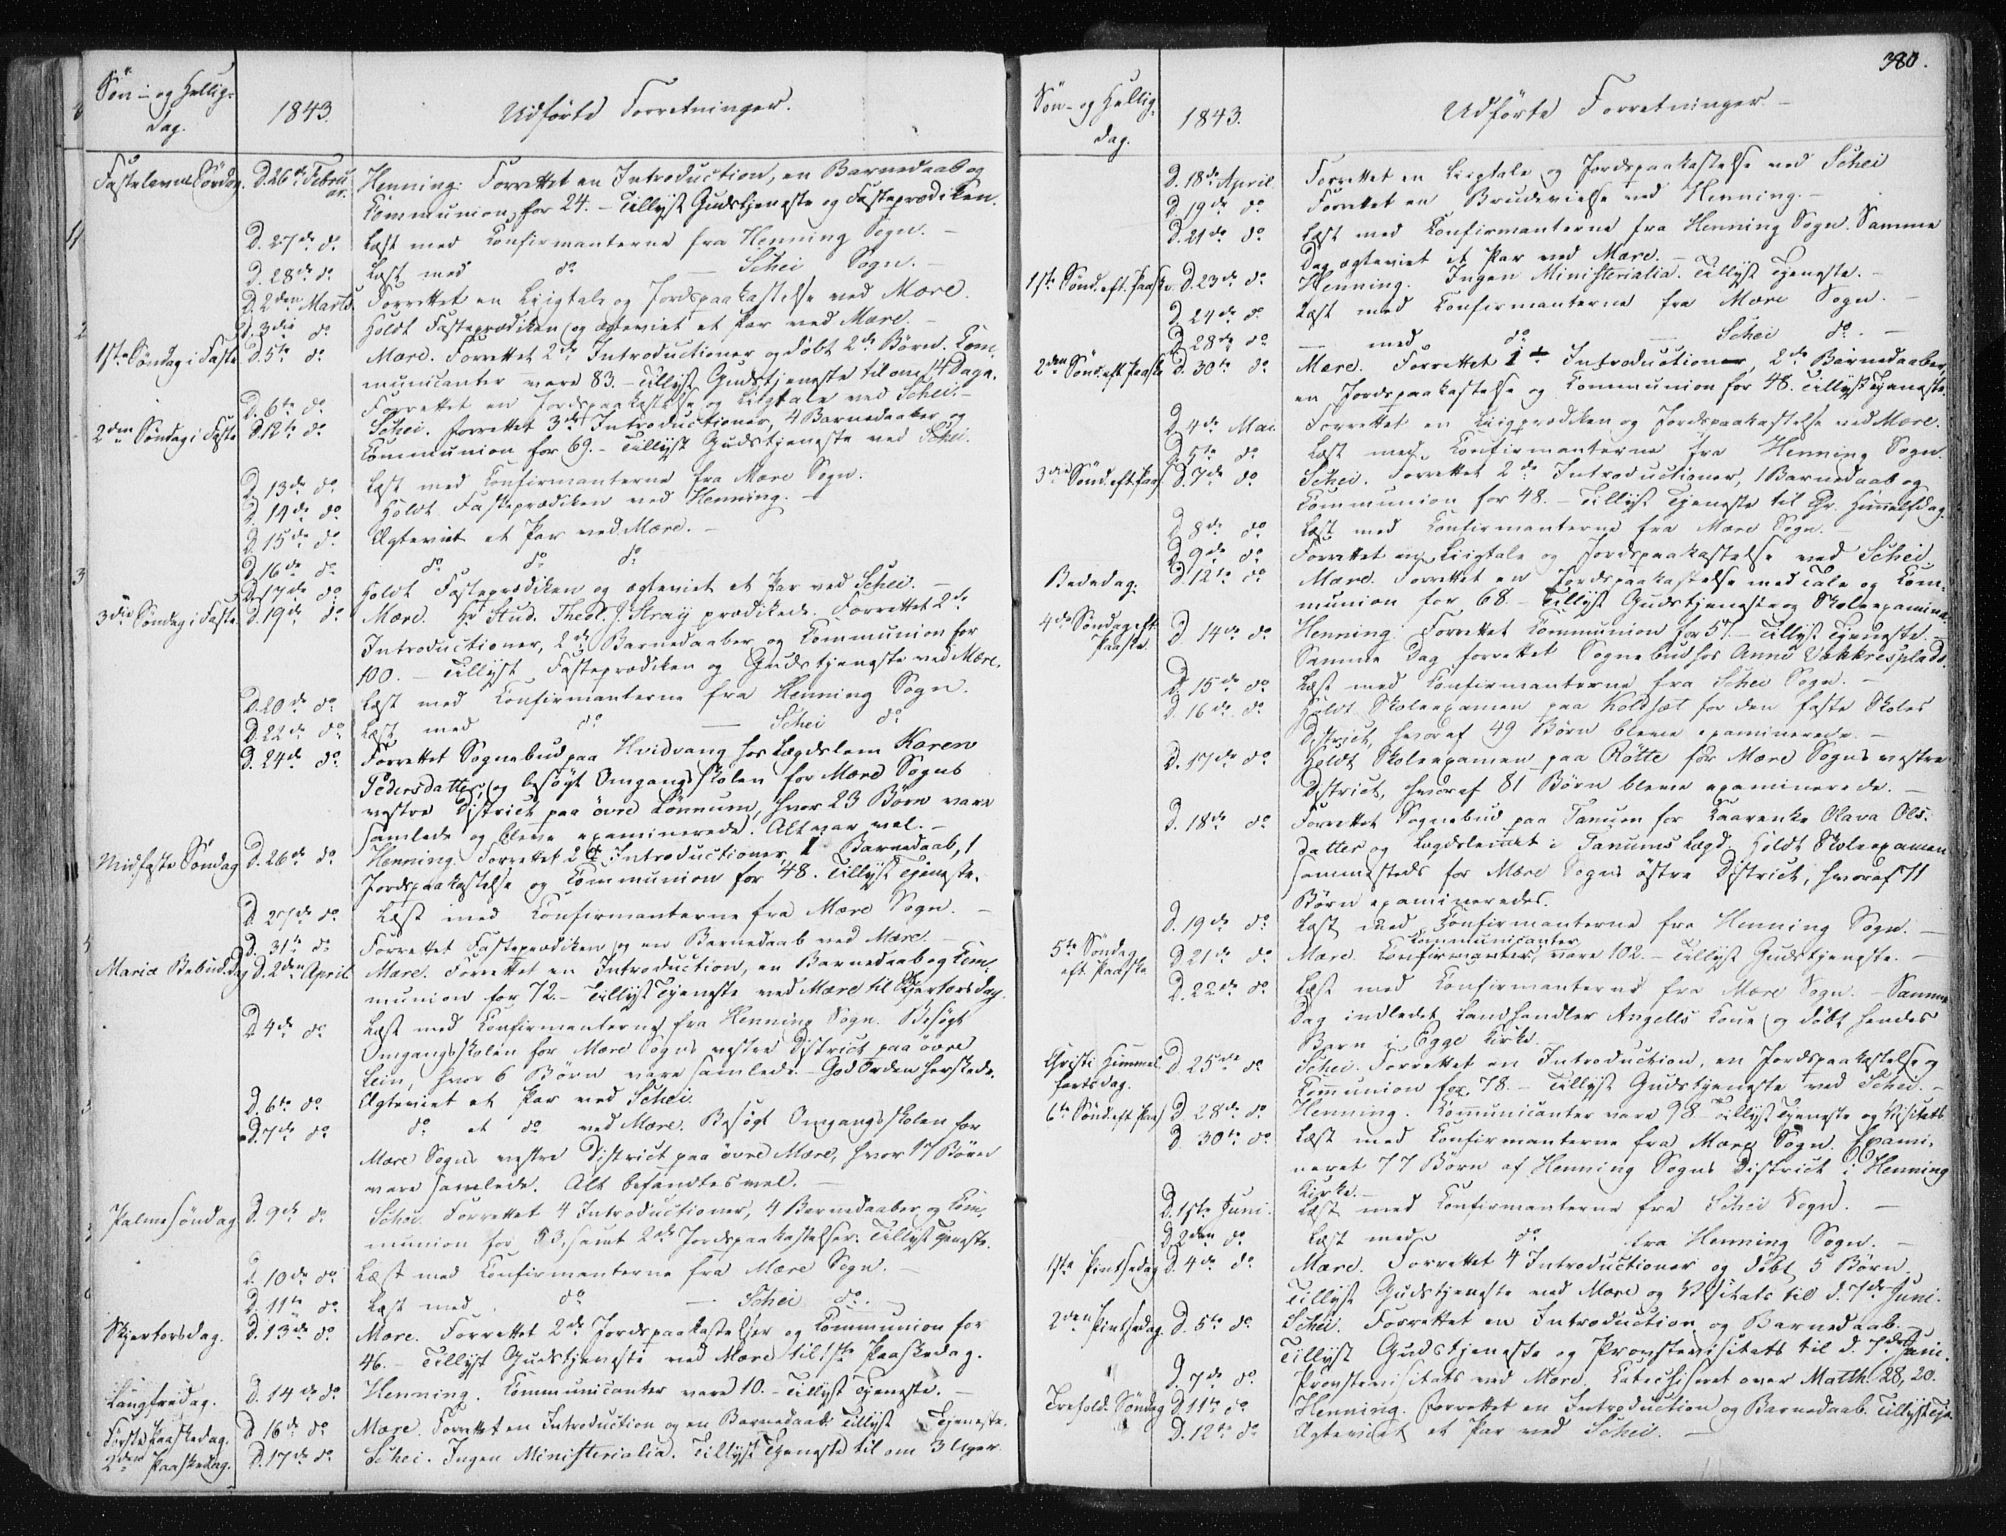 Søn- og Hellig-
dag.
1843.
Udførte Forretninger.
Fastelavns Søndag. D. 26de Febru- Henning. Forrettet en Introduction, en Barnedaab og
ar. Communion for 24. - Tillyst Gudstjeneste og Fasteprædiken.
D. 27de do. Læst med Confirmanterne fra Henning Sogn. -
D. 28de do. Læst med do. - Schei Sogn. -
D. 2den Marts. Forrettet en Liigtale og Jordspaakastelse ved Mære.
D. 3die do. Holdt Fasteprædiken og ægteviet et Par ved Mære. -
1ste Søndag i Faste D. 5te do. Mære. Forrettet 2de Introductioner og døbt 2de Børn. Com-
municanter vare 83. - Tillyst Gudstjeneste til om 14 Dage.
D. 6te do. Forrettet en Jordspaakastelse og Liigtale ved Schei. -
2den Søndag i Faste D. 12te do. Schei. Forrettet 3de Introductioner, 4 Barnedaaber og
Communion for 69. - Tillyst Gudstjeneste ved Schei.
D. 13de do. Læst med Confirmanterne fra Mære Sogn.
D. 14de do. Holdt Fasteprædiken ved Henning. -
D. 15de do. Ægteviet et Par ved Mære. -
D. 16de do. do. do. do.
D. 17de do. Holdt Fasteprædiken og ægteviet et Par ved Schei. -
3die Søndag i Faste D. 19de do. Mære. Hr Stud. Theol. J. Kraij prædikede. Forrettet 2de
Introductioner, 2de Barnedaaber og Communion for
100. - Tillyst Fasteprædiken og Gudstjeneste ved Mære.
D. 20de do. Læst med Confirmanterne fra Henning Sogn.
D. 22de do. Læst med do. - Schei do.
D. 24de do. Forrettet Sognebud paa Hvidvang hos Lægdslem Karen
Pedersdatter, og besøgt Omgangsskolen for Mære Sogns
vestre District paa øvre Lønnum, hvor 23 Børn vare
samlede og bleve examinerede. Alt var vel. -
Midfaste Søndag D. 26de do. Henning. Forrettet 2 Introductioner, 1 Barnedaab, 1
Jordspaakastelse og Communion for 48. Tillyst Tjeneste.
D. 27de do. Læst med Confirmanterne fra Mære Sogn. -
D. 31te do. Forrettet Fasteprædiken og en Barnedaab ved Mære. -
Mariæ Bebud. Dag D. 2den April Mære. Forrettet en Introduction, en Barnedaab og Com-
munion for 72. - Tillyst Tjeneste ved Mære til Skjertorsdag.
D. 4de do. Læst med Confirmanterne fra Henning Sogn. Besøgt
Omgangsskolen for Mære Sogns vestre District paa øvre
Lein, hvor 6 Børn vare samlede. - God Orden herskede.
D. 6te do. Ægteviet et Par ved Schei.
D. 7de do. do. et do. ved Mære. Besøgt Omgangsskolen for
Mære Sogns vestre District paa øvre Mære, hvor 17 Børn
vare samlede. Alt befandtes vel. -
Palmesøndag D. 9de do. Schei. Forrettet 4 Introductioner, 4 Barnedaaber og Com-
munion for 53, samt 2de Jordspaakastelser. Tillyst Tjeneste.
D. 10de do. Læst med Confirmanterne fra Mære Sogn. -
D. 11te do. Læst med do. - Schei do. -
Skjertorsdag. D. 13de do. Mære. Forrettet 2de Jordspaakastelser og Communion for
46. - Tillyst Gudstjeneste ved Mære til 1ste Paaskedag.
Langfredag. D. 14de do. Henning. Communicanter vare 10. - Tillyst Tjeneste. -
Første Paaskedag. D. 16de do. Mære. Forrettet en Introduction og en Barnedaab. Tillyst Tjeneste.
2den Paaskedag. D. 17de do. Schei. Ingen Ministerialia. Tillyst Tjeneste til om 3 Uger.
380.
Søn- og Hellig-
dag.
1843.
Udførte Forretninger -
D. 18de April Forrettet en Liigtale og Jordspaakastelse ved Schei
D. 19de do. Forrettet en Brudevielse ved Henning. -
D. 21de do. Læst med Confirmanterne fra Henning Sogn. Samme
Dag ægteviet et Par ved Mære. -
1ste Sønd. eft. Paaske. D. 23de do. Henning. Ingen Ministerialia. Tillyst Tjeneste. -
D. 24de do. Læst med Confirmanterne fra Mære Sogn. -
D. 28de do. - med do. - Schei do. -
2den Sønd. eft. Paaske D. 30te do. Mære. Forrettet 1 Introduction, 2de Barnedaaber,
en Jordspaakastelse og Communion for 48. Tillyst Tjeneste.
D. 4de Mai. Forrettet en Liigprædiken og Jordspaakastelse ved Mære.
D. 5te do. Læst med Confirmanterne fra Henning Sogn.
3die Sønd. eft. Paas. D. 7de do. Schei. Forrettet 2de Introductioner, 1 Barnedaab og
Communion for 48. - Tillyst Tjeneste til Chr. Himmelfdag.
D. 8de do. Læst med Confirmanterne fra Mære Sogn.
D. 9de do. Forrettet en Liigtale og Jordspaakastelse ved Schei
Bededag. D. 12te do. Mære. Forrettet en Jordspaakastelse med Tale og Com-
munion for 68. - Tillyst Gudstjeneste og Skoleexamina.
4de Søndag eft. D. 14de do. Henning. Forrettet Communion for 57. - Tillyst Tjeneste. -
Paaske. Samme Dag forrettet Sognebud hos Anne Vekkresplads.
D. 15de do. Læst med Confirmanterne fra Schei Sogn. -
D. 16de do. Holdt Skoleexamen paa Koldsæt for den faste Skoles
District, hvoraf 49 Børn bleve examinerede. -
D. 17de do. Holdt Skoleexamen paa Røtte for Mære Sogns vestre
District, hvoraf 81 Børn bleve examinerede. -
D. 18de do. Forrettet Sognebud paa Tanum for Kaarenke Olava Ols-
datter og Lægdslemet i Tanums Lægd. Holdt Skoleexamen
sammesteds for Mære Sogns østre District, hvoraf 71
Børn examineredes.
D. 19de do. Læst med Confirmanterne fra Henning Sogn. -
5te Søndag D. 21de do. Mære. Communicanter vare 102. - Tillyst Gudstjeneste. -
eft. Paaske
D. 22de do. Læst med Confirmanterne fra Mære Sogn. - Samme
Dag indledet Landhandler Angells Kone og døbt hendes
Barn i Egge Kirke.
Christi Himmel- D. 25de do. Schei. Forrettet en Introduction, en Jordspaakastelse og
fartsdag. Communion for 78. - Tillyst Gudstjeneste ved Schei. -
6te Sønd. eft. Paas. D. 28de do. Henning. Communicanter vare 98. Tillyst Tjeneste og Visitats
D. 30te do. Læst med Confirmanterne fra Mære Sogn. Exami-
neret 77 Børn af Henning Sogns District i Henning
Kirke. -
D. 1ste Juni. Læst med Confirmanterne fra Schei Sogn. -
D. 2den do. Læst med do. fra Henning Sogn. -
1ste Pintsedag D. 4de do. Mære. Forrettet 4 Introductioner og døbt 5 Børn.
Tillyst Gudstjeneste ved Mære og Visitats til d. 7de Juni.
2den Pintsedag. D. 5te do. Schei. Forrettet en Introduction og Barnedaab. -
Tillyst Gudstjeneste og Provstevisitats til d. 7de Juni.
D. 7de do. Provstevisitats ved Mære. Catechiseret over Matth. 28, 20.
Trefold. Søndag D. 11te do. Henning. Forrettet en Introduction og Barnedaab. Tillyst Tje.
D. 12te do. Ægteviet et Par ved Schei. -